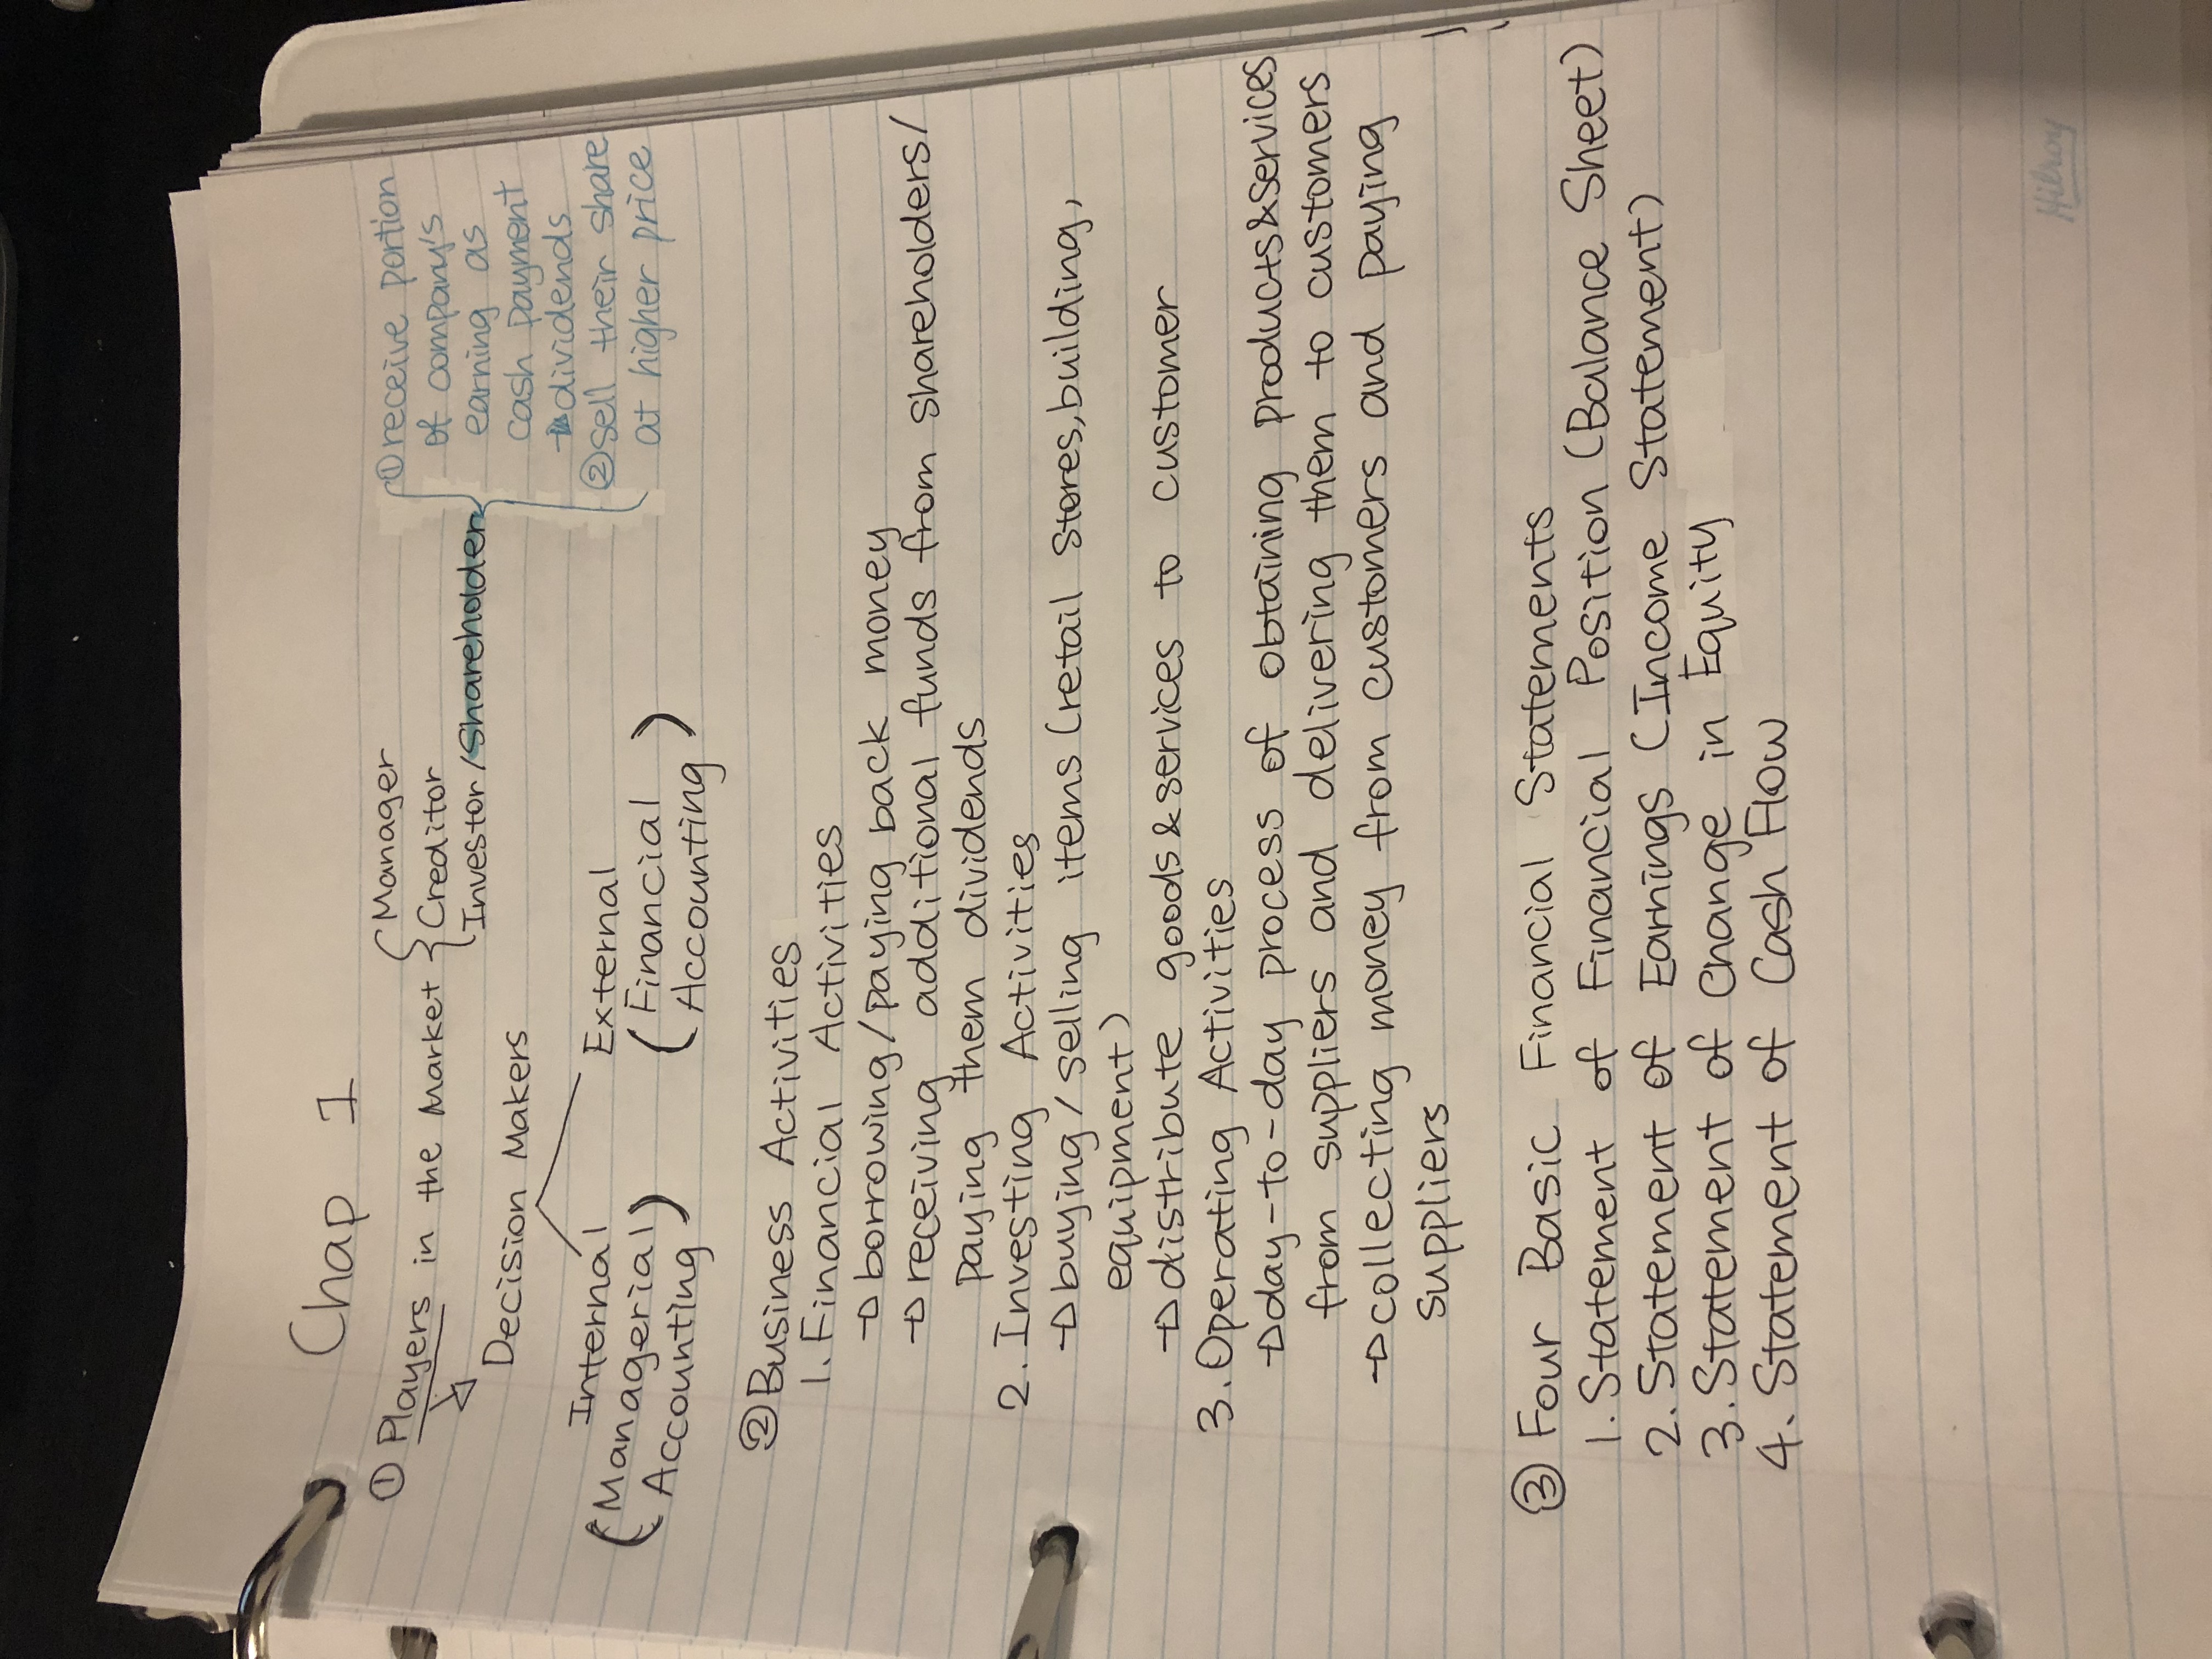 Chap 1
① Players in the Market { Manager
Creditor
Investor/Shareholder
① receive portion
of company's
earning as
cash payment
→ dividends
② sell their share
at higher price
Decision Makers
Internal
(Managerial
Accounting)
External
(Financial
Accounting)
② Business Activities
1. Financial Activities
→ borrowing/paying back money
→ receiving additional funds from shareholders/
paying them dividends
2. Investing Activities
→ buying/selling items (retail stores, building,
equipment)
→ distribute goods & services to customer
3. Operating Activities
→ day-to-day process of obtaining products & services
from suppliers and delivering them to customers
→ collecting money from customers and paying
suppliers
③ Four Basic Financial Statements
1. Statement of Financial Position (Balance Sheet)
2. Statement of Earnings (Income Statement)
3. Statement of Change in Equity
4. Statement of Cash Flow
Hilroy